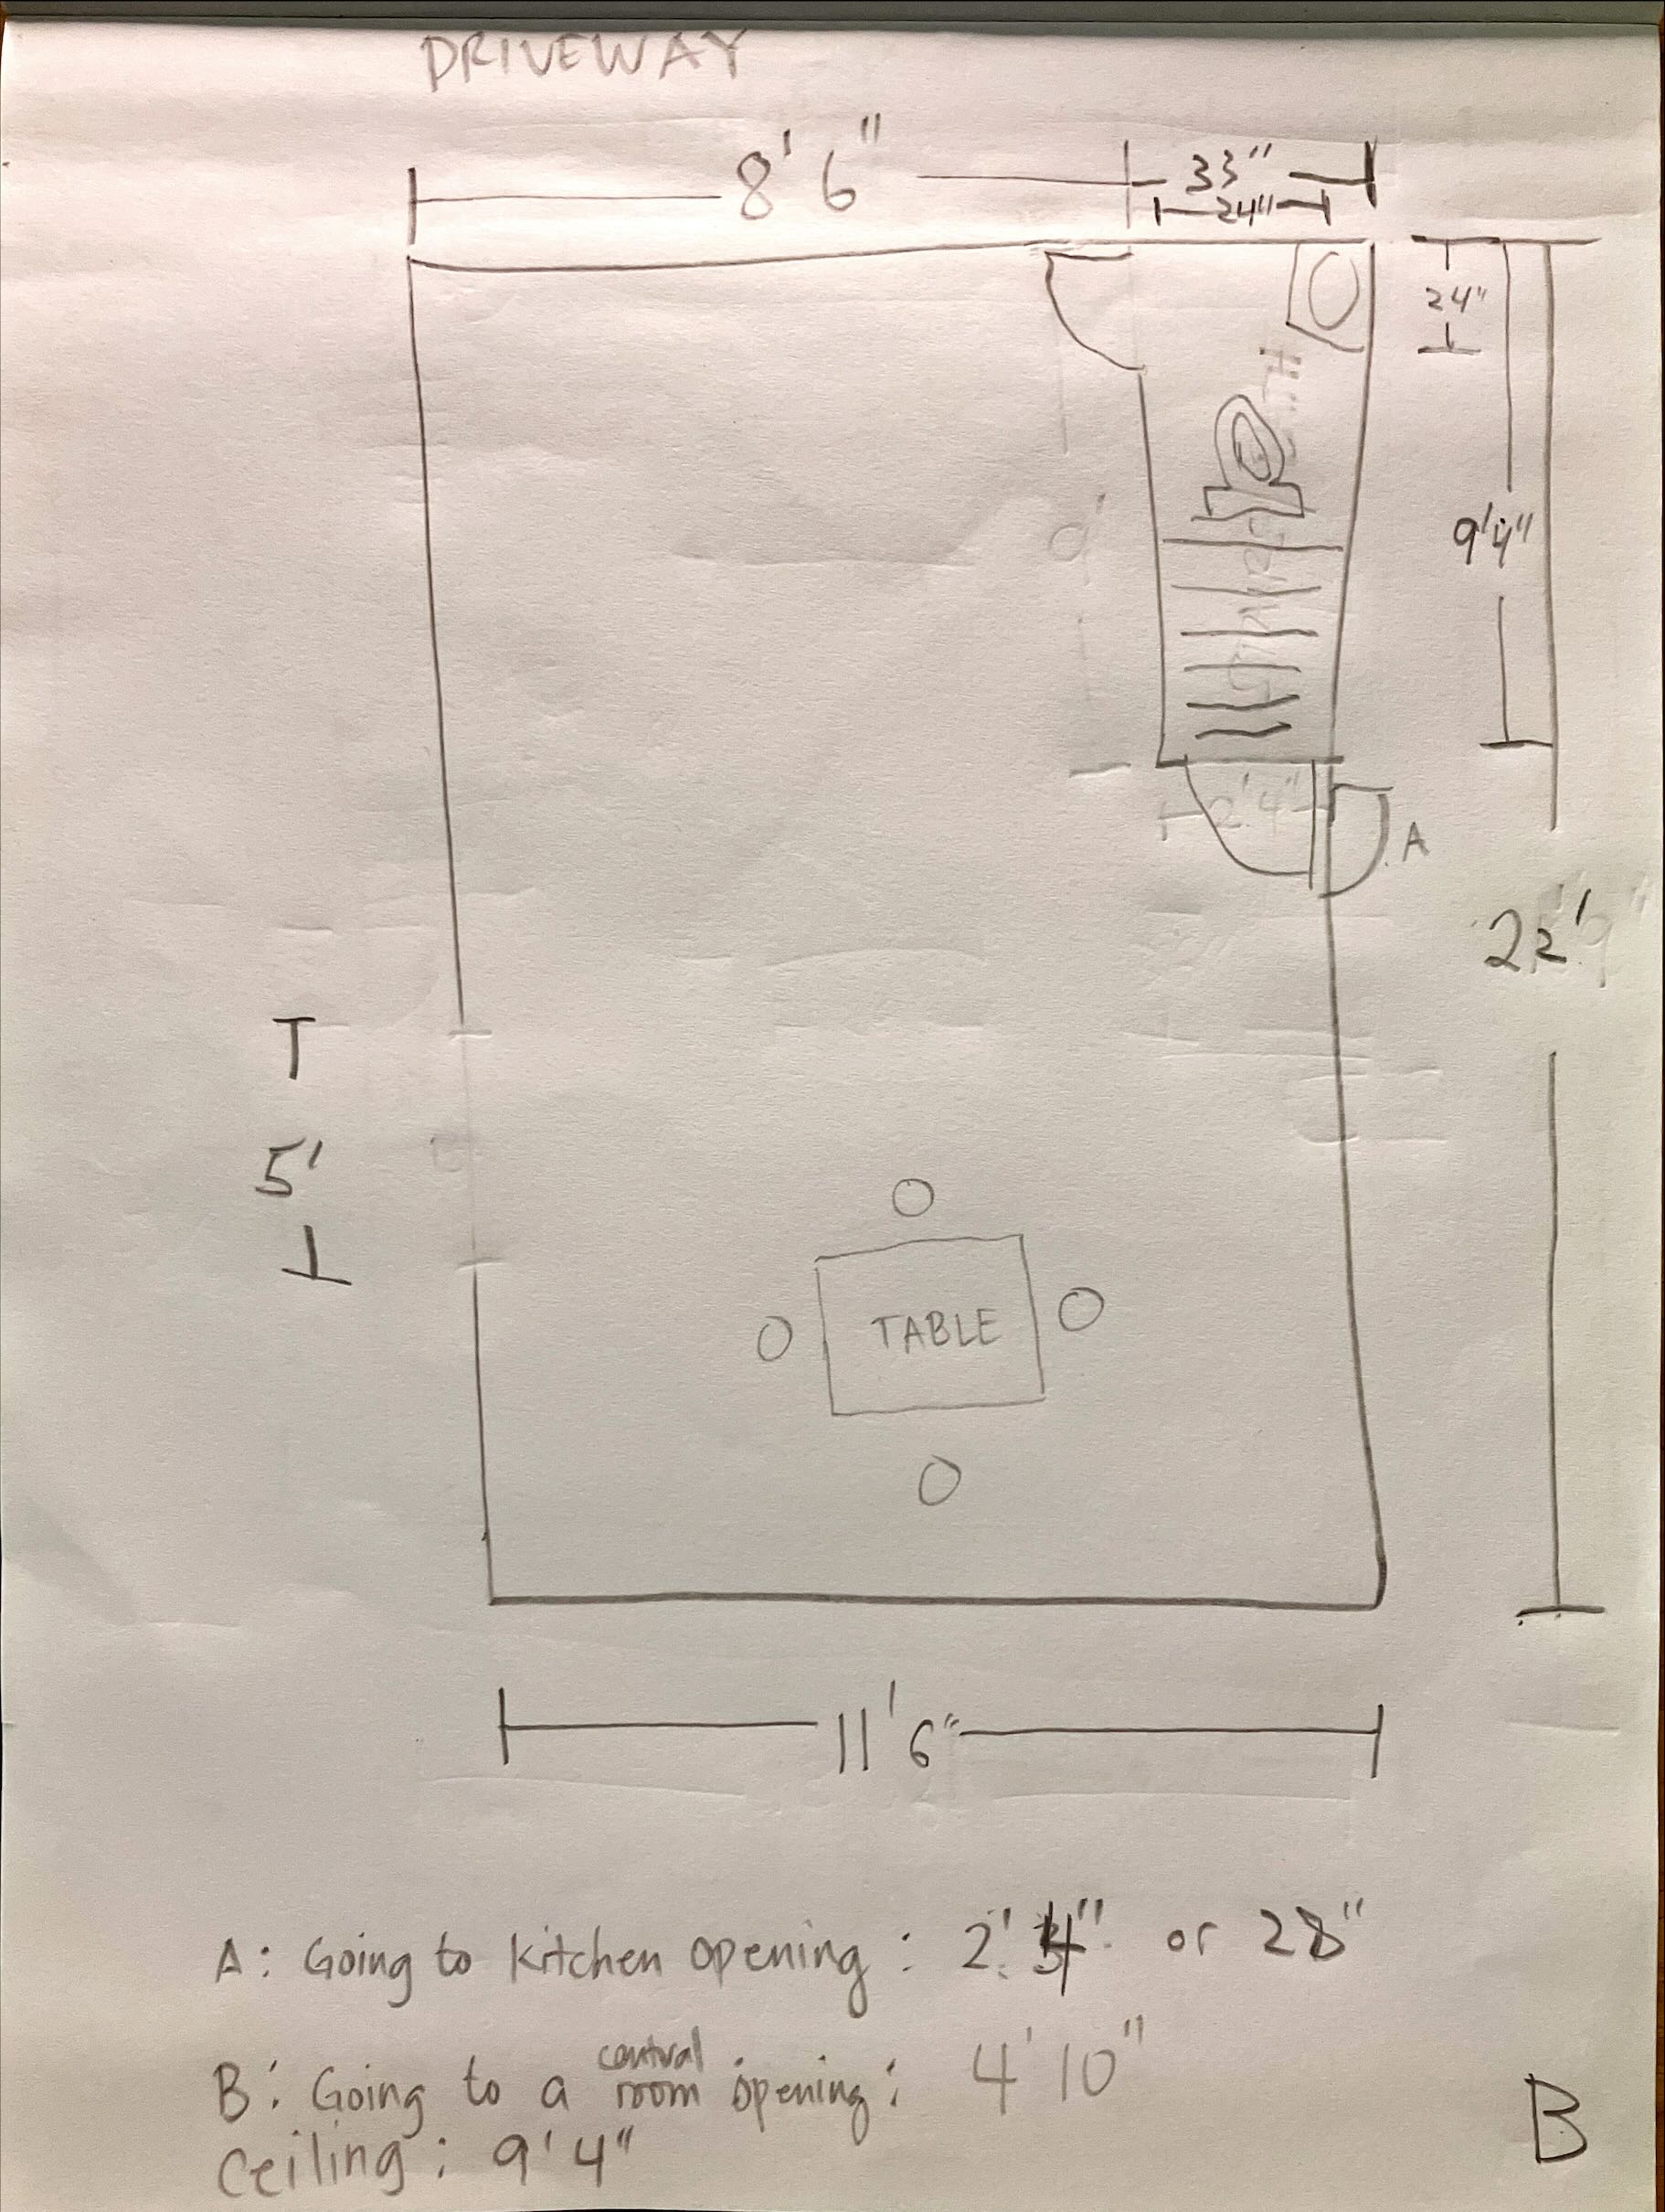 DRIVEWAY
8' 6"
33"
24"
24"
9'4"
2'4"
A
22'
5'
TABLE
11' 6"
A: Going to Kitchen opening: 2' 4" or 28"
B: Going to a central room opening: 4' 10"
Ceiling: 9' 4"
B